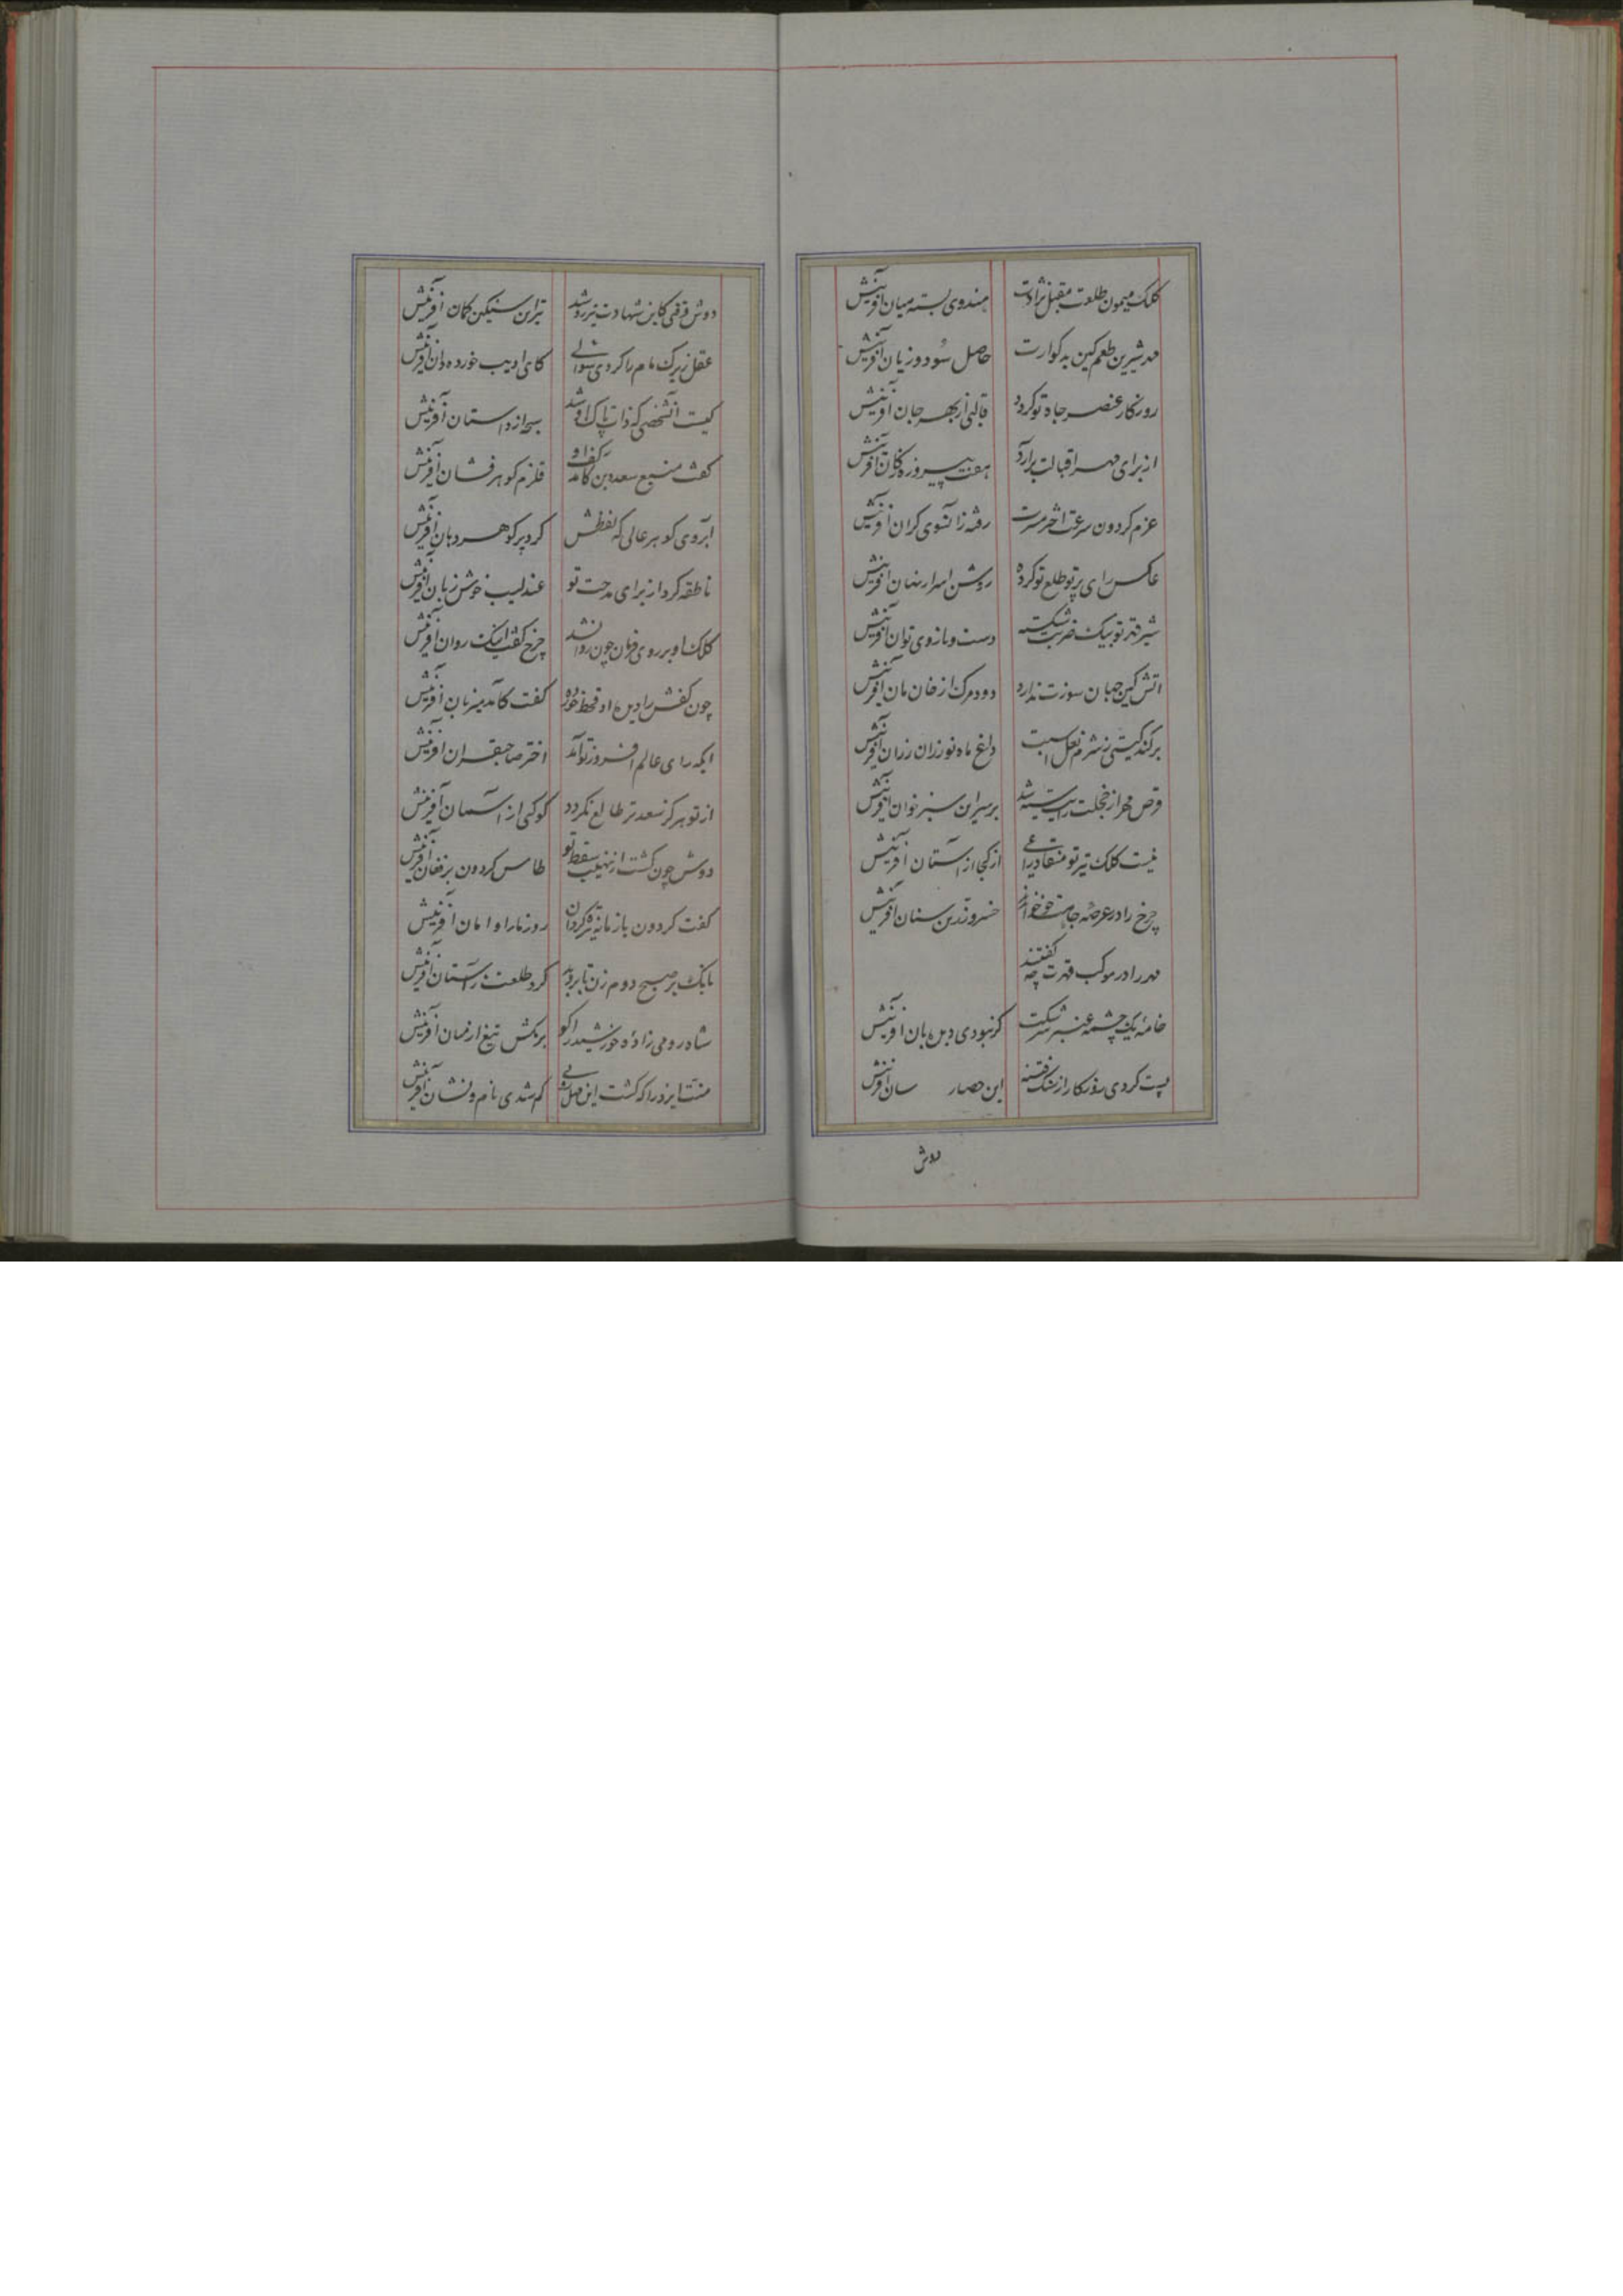 کلک میمون طلعت مقبل نژادت هندوی بسته میان آفرینش
مهر شیرین طعم کین بدگوارت حاصل سود و زیان آفرینش
روزگار عنصر جاه تو کرد قالبی از بهر جان آفرینش
از برای مهر اقبالت برآرد هفت پیروزه ز کان آفرینش
عزم گردون سرعت اخترسرت رفته زانسوی کران آفرینش
عاکس رای پرتو طلع تو کرده روشن اسرار نهان آفرینش
شیر قهر تو بیک ضربت شکسته دست و بازوی توان آفرینش
آتش کین جهان سوزت ندارد دود مرگ از خان مان آفرینش
برکند گیتی ز شرم نعل اسبت داغ ماه نو ز ران آفرینش
قرص مهر از خجلت رایت شد بر سر این سبز خوان آفرینش
نیست کلک تیر تو منقاد از کجی از آستان آفرینش
چرخ را در عرصه جاهت خسرو زرین سنان آفرینش
مهر را در موکب قهرت چه گفتند
خامه یک چشمه عنبر سرشکت گر نبودی دیده بان آفرینش
پست کردی روزگار از سنگ فتنه این حصار سان آفرینش
دوش
دوش رفتی کاین شهادت تیر رو شد تیر این سنگین کمان آفرینش
عقل زیرک نام را کردی سوالی کای ادیب خورده دان آفرینش
کیست آنشخصی که ذات پاک او شد سحاز داستان آفرینش
گفت منبع سعد دین کامد کف او قلزم گوهرفشان آفرینش
آبروی گوهر عالی که لفظش کرد پر گوهر دهان آفرینش
ناطقه کرد از برای مدحت تو عندلیب خوش زبان آفرینش
کلک او بر روی فرمان چون روان شد چرخ گفت اینک روان آفرینش
چون کفش را دیده او قحط خورده گفت کامد میزبان آفرینش
ایکه رای عالم افروز تو آمد اختر صاحبقران آفرینش
از تو هرگز سعدتر طالع نگردد کوکبی از آسمان آفرینش
دوش چون گشت از نهیب سقطه تو طاس گردون پر فغان آفرینش
گفت گردون با زمانه روز ما را و امان آفرینش
بانک بر صبح دوم زن تا برون کرد طلعت ز آستان آفرینش
شاه رومی زاده خورشید را گو برکش تیغ از میان آفرینش
منت ایزد را که گشت این گم شدی نام و نشان آفرینش